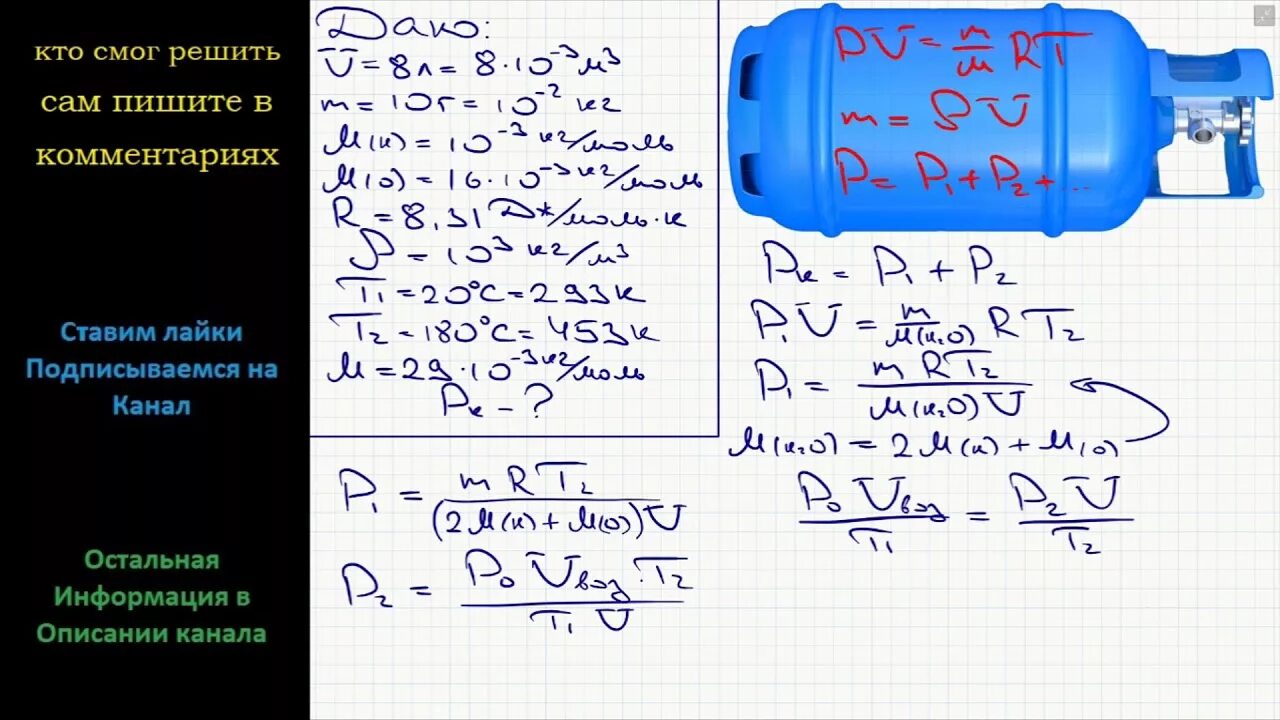 кто смог решить
сам пишите в
комментариях
Ставим лайки
Подписываемся на
Канал
Остальная
Информация в
Описании канала
Дано:
V = 8л = 8·10⁻³ м³
m = 10г = 10⁻² кг
M(н) = 10⁻³ кг/моль
M(о) = 16·10⁻³ кг/моль
R = 8,31 Дж/моль·к
ρ = 10³ кг/м³
T₁ = 20°C = 293к
T₂ = 180°C = 453к
M = 29·10⁻³ кг/моль
Pк - ?
P₁ = mRT₂ / (2M(н) + M(о))V
P₂ = P₀Vвоз·T₂ / T₁V
PV = m/M RT
m = ρV
P = P₁ + P₂ + ...
Pк = P₁ + P₂
P₁V = m/M(н₂о) RT₂
P₁ = mRT₂ / M(н₂о)V
M(н₂о) = 2M(н) + M(о)
P₀Vвоз / T₁ = P₂V / T₂